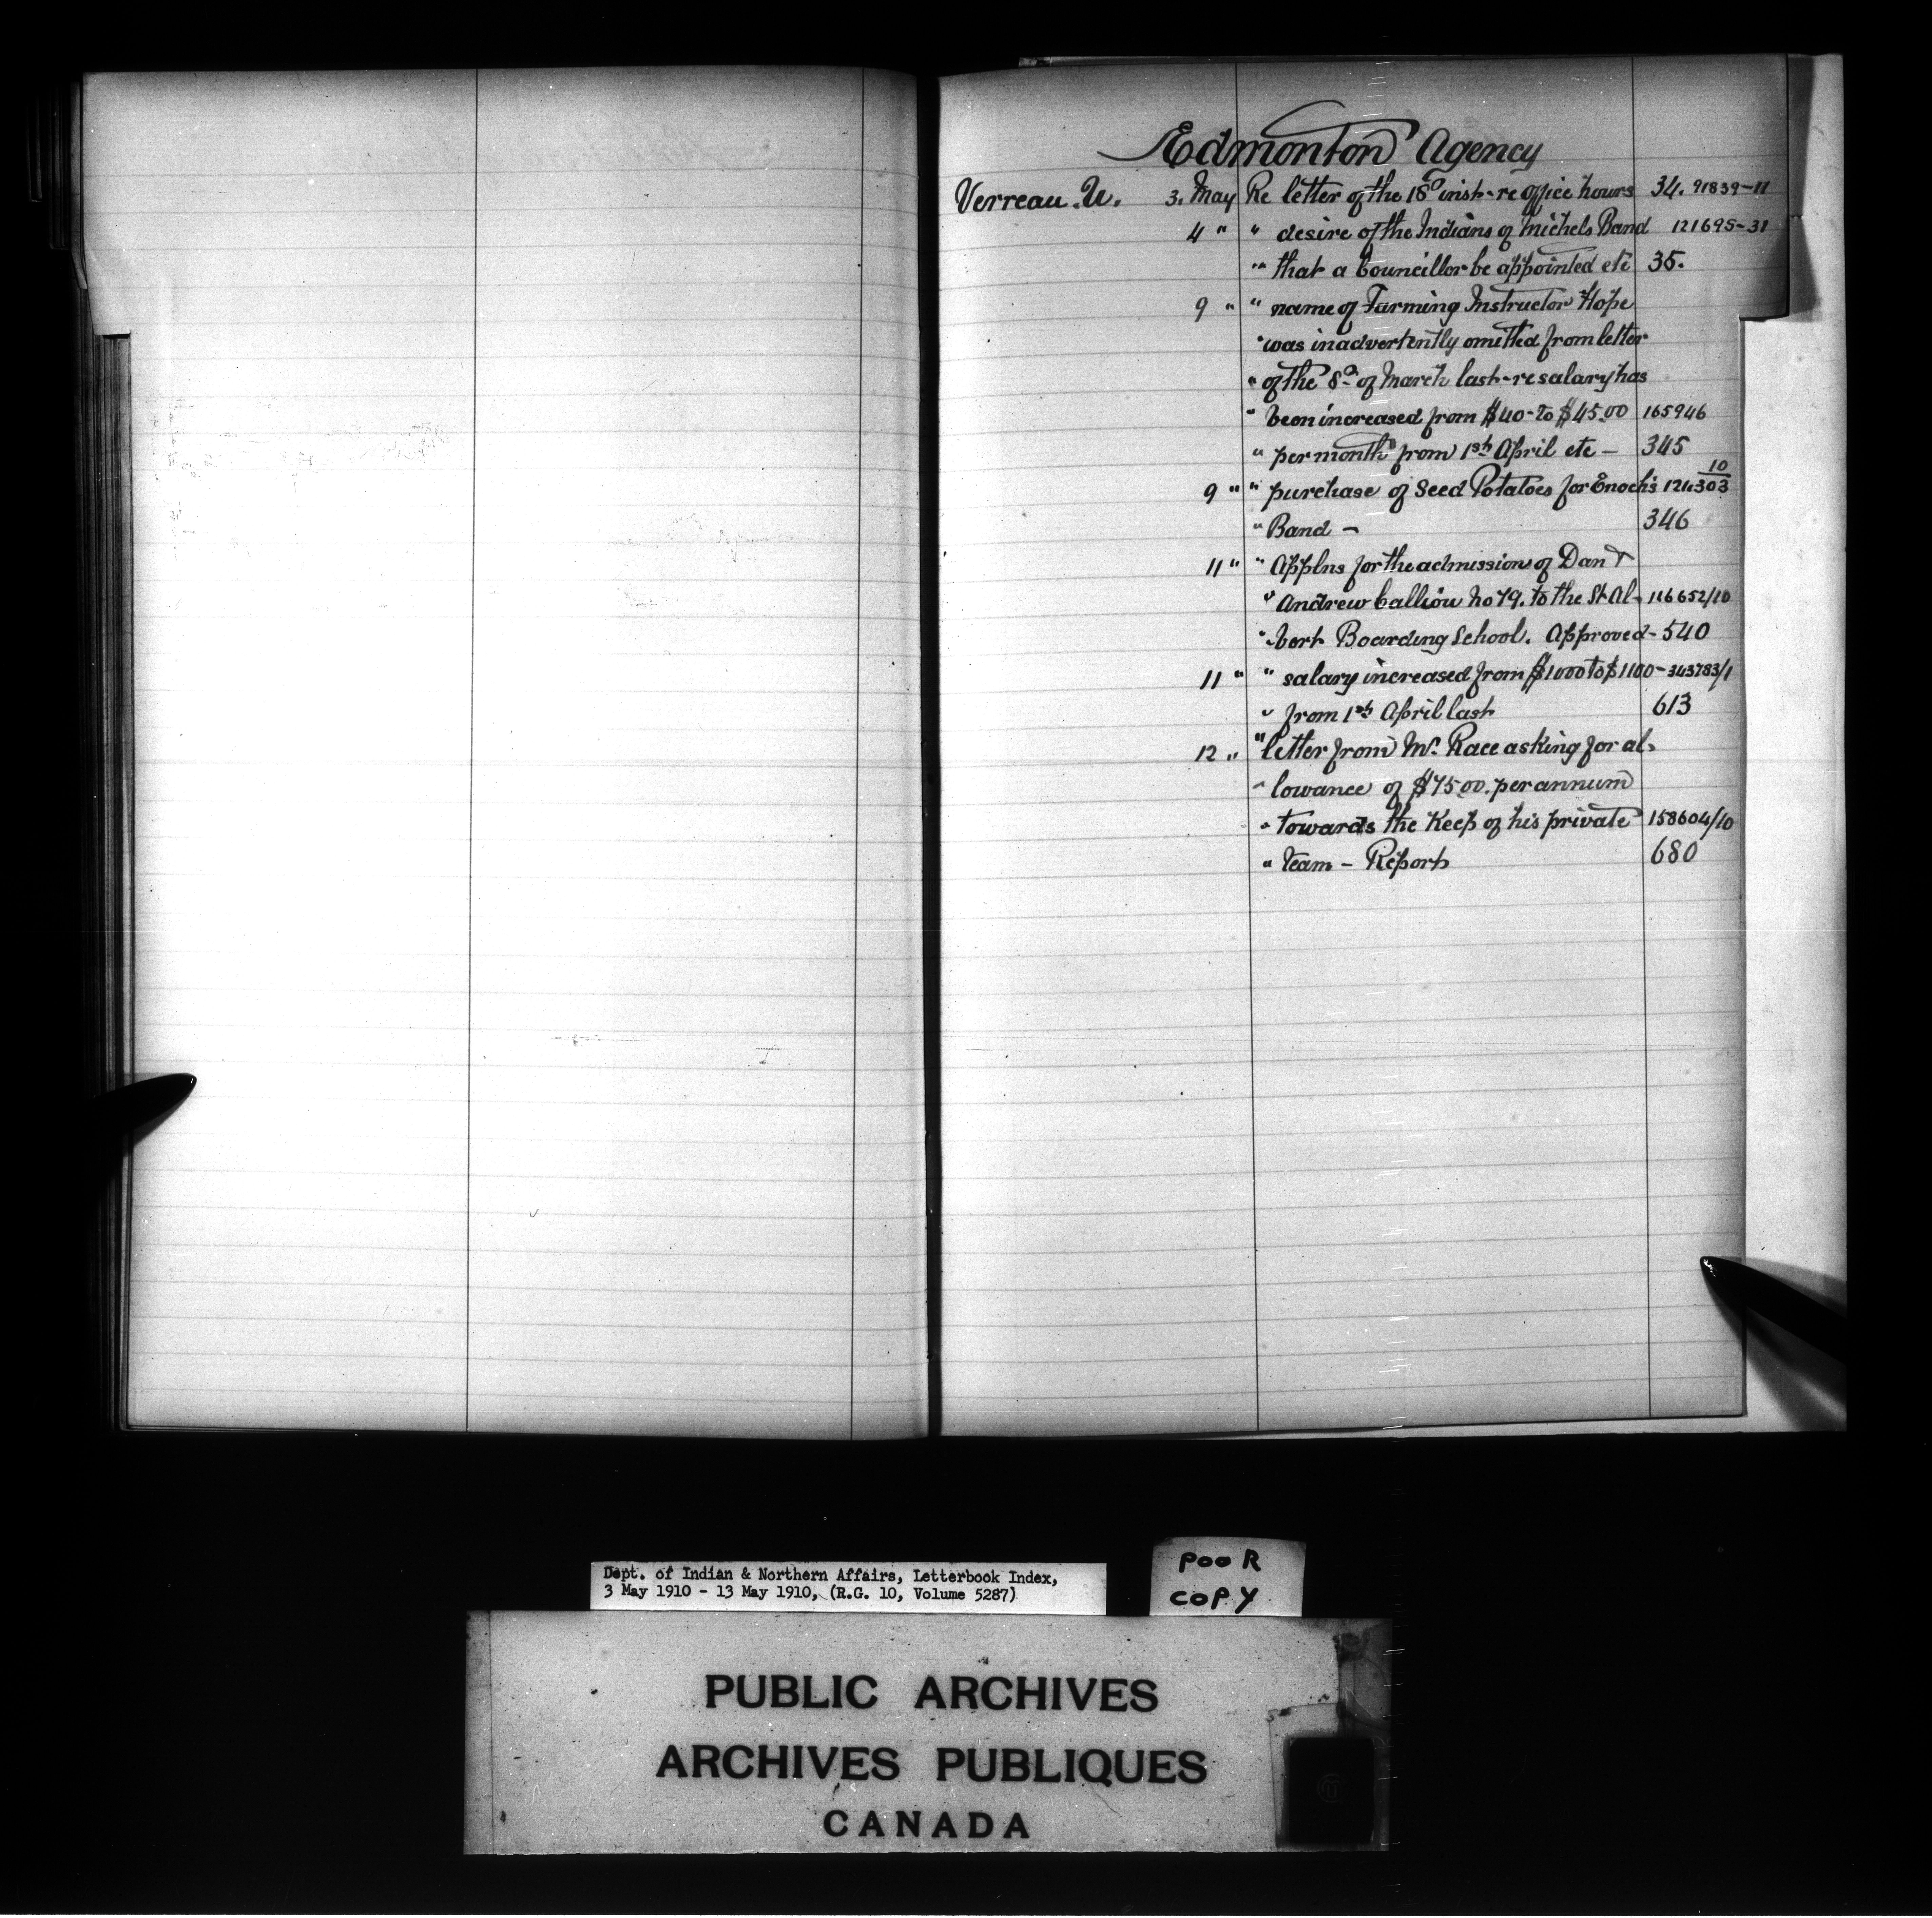 Edmonton Agency
Verreau. U. 3. May Re letter of the 18th inst - re office hours 34. 91839-11
4 " " desire of the Indians of Michels Band 121695-31
" that a Councillor be appointed etc 35.
9 " " name of Farming Instructor Hope
" was inadvertently omitted from letter
" of the 8th of March last - re salary has
" been increased from $40- to $45.00 165946
" per month from 1st April etc - 345
9 " " purchase of Seed Potatoes for Enoch's 124303 10
" Band - 346
11 " " Applns for the admission of Dan &
" Andrew Calliou No 79. to the St Al- 116652/10
" bert Boarding School. Approved - 540
11 " " salary increased from $1000 to $1100 - 343783/1
" from 1st April last 613
12 " " letter from Mr. Race asking for al-
" lowance of $75.00. per annum
" towards the Keep of his private 158604/10
" team - Report 680
Dept. of Indian & Northern Affairs, Letterbook Index,
3 May 1910 - 13 May 1910, (R.G. 10, Volume 5287)
POOR
COPY
PUBLIC ARCHIVES
ARCHIVES PUBLIQUES
CANADA